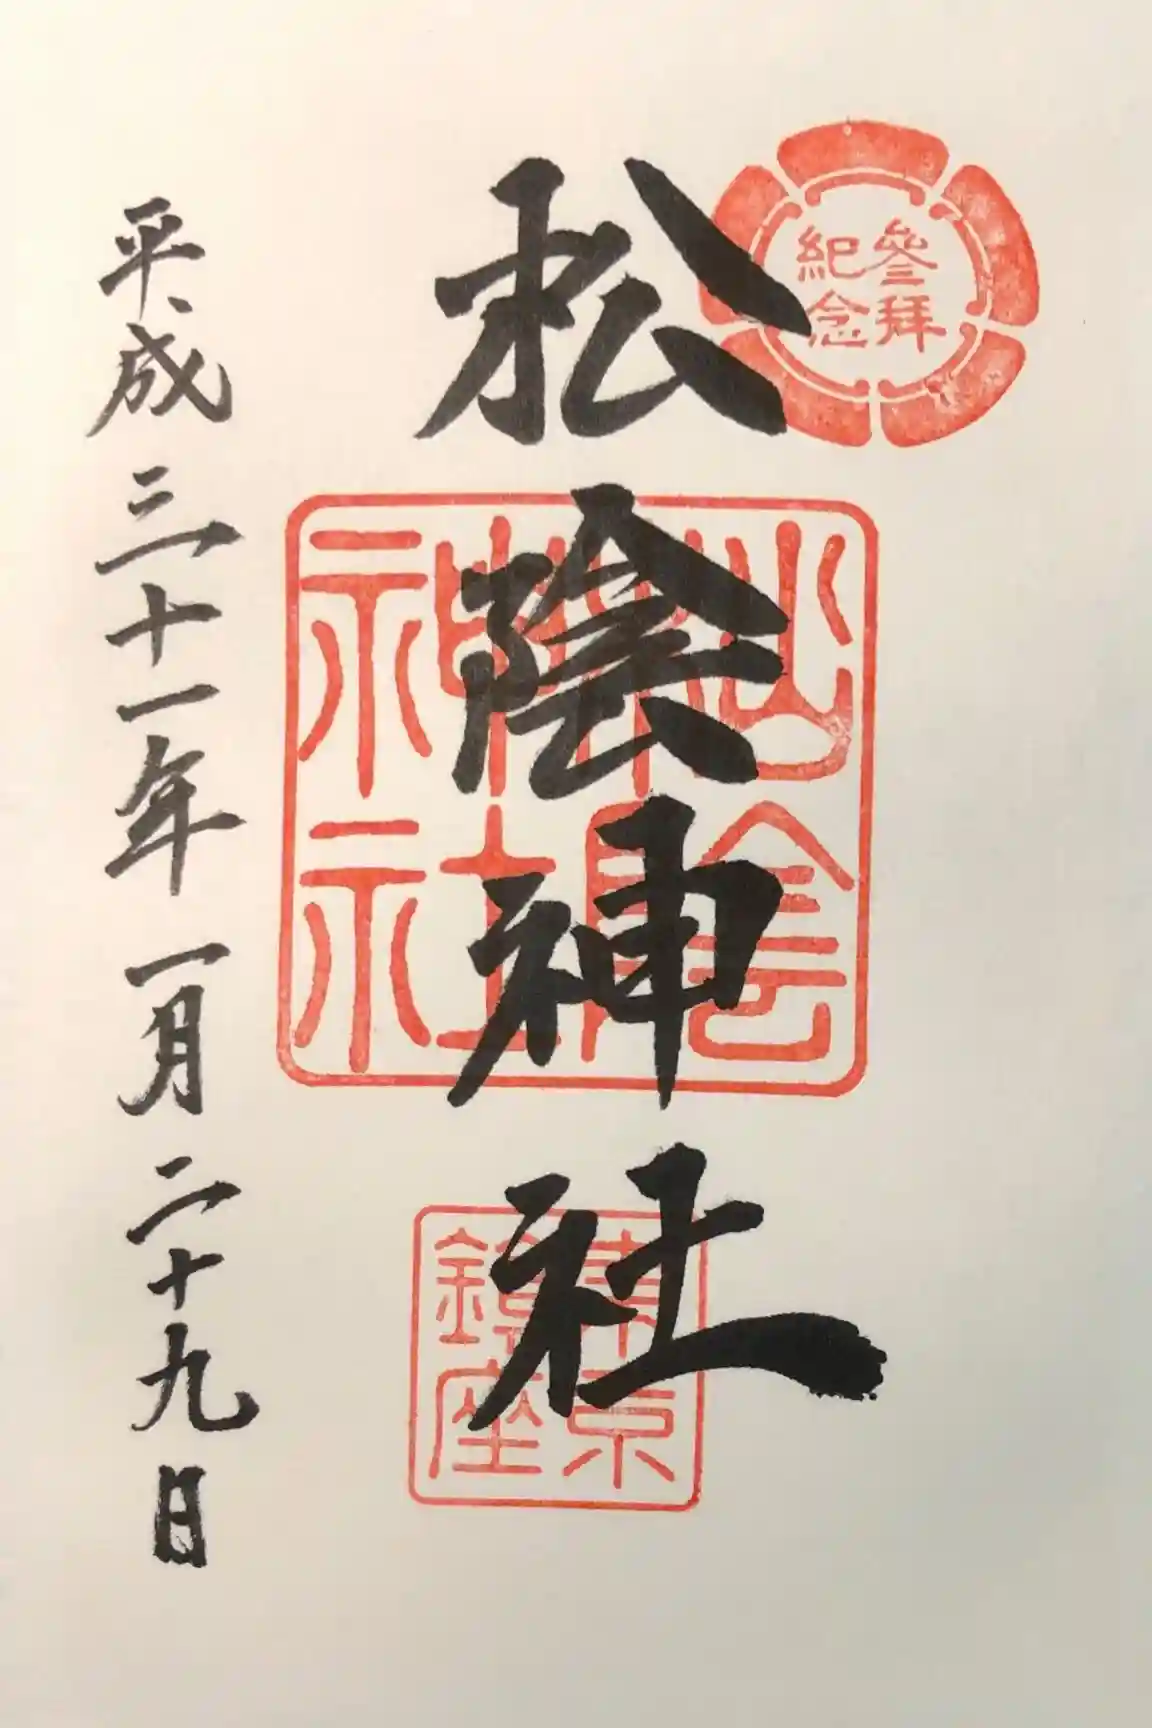 參拜
紀念
松陰神社
松陰
神社
東京
鎮座
平成三十一年一月二十九日